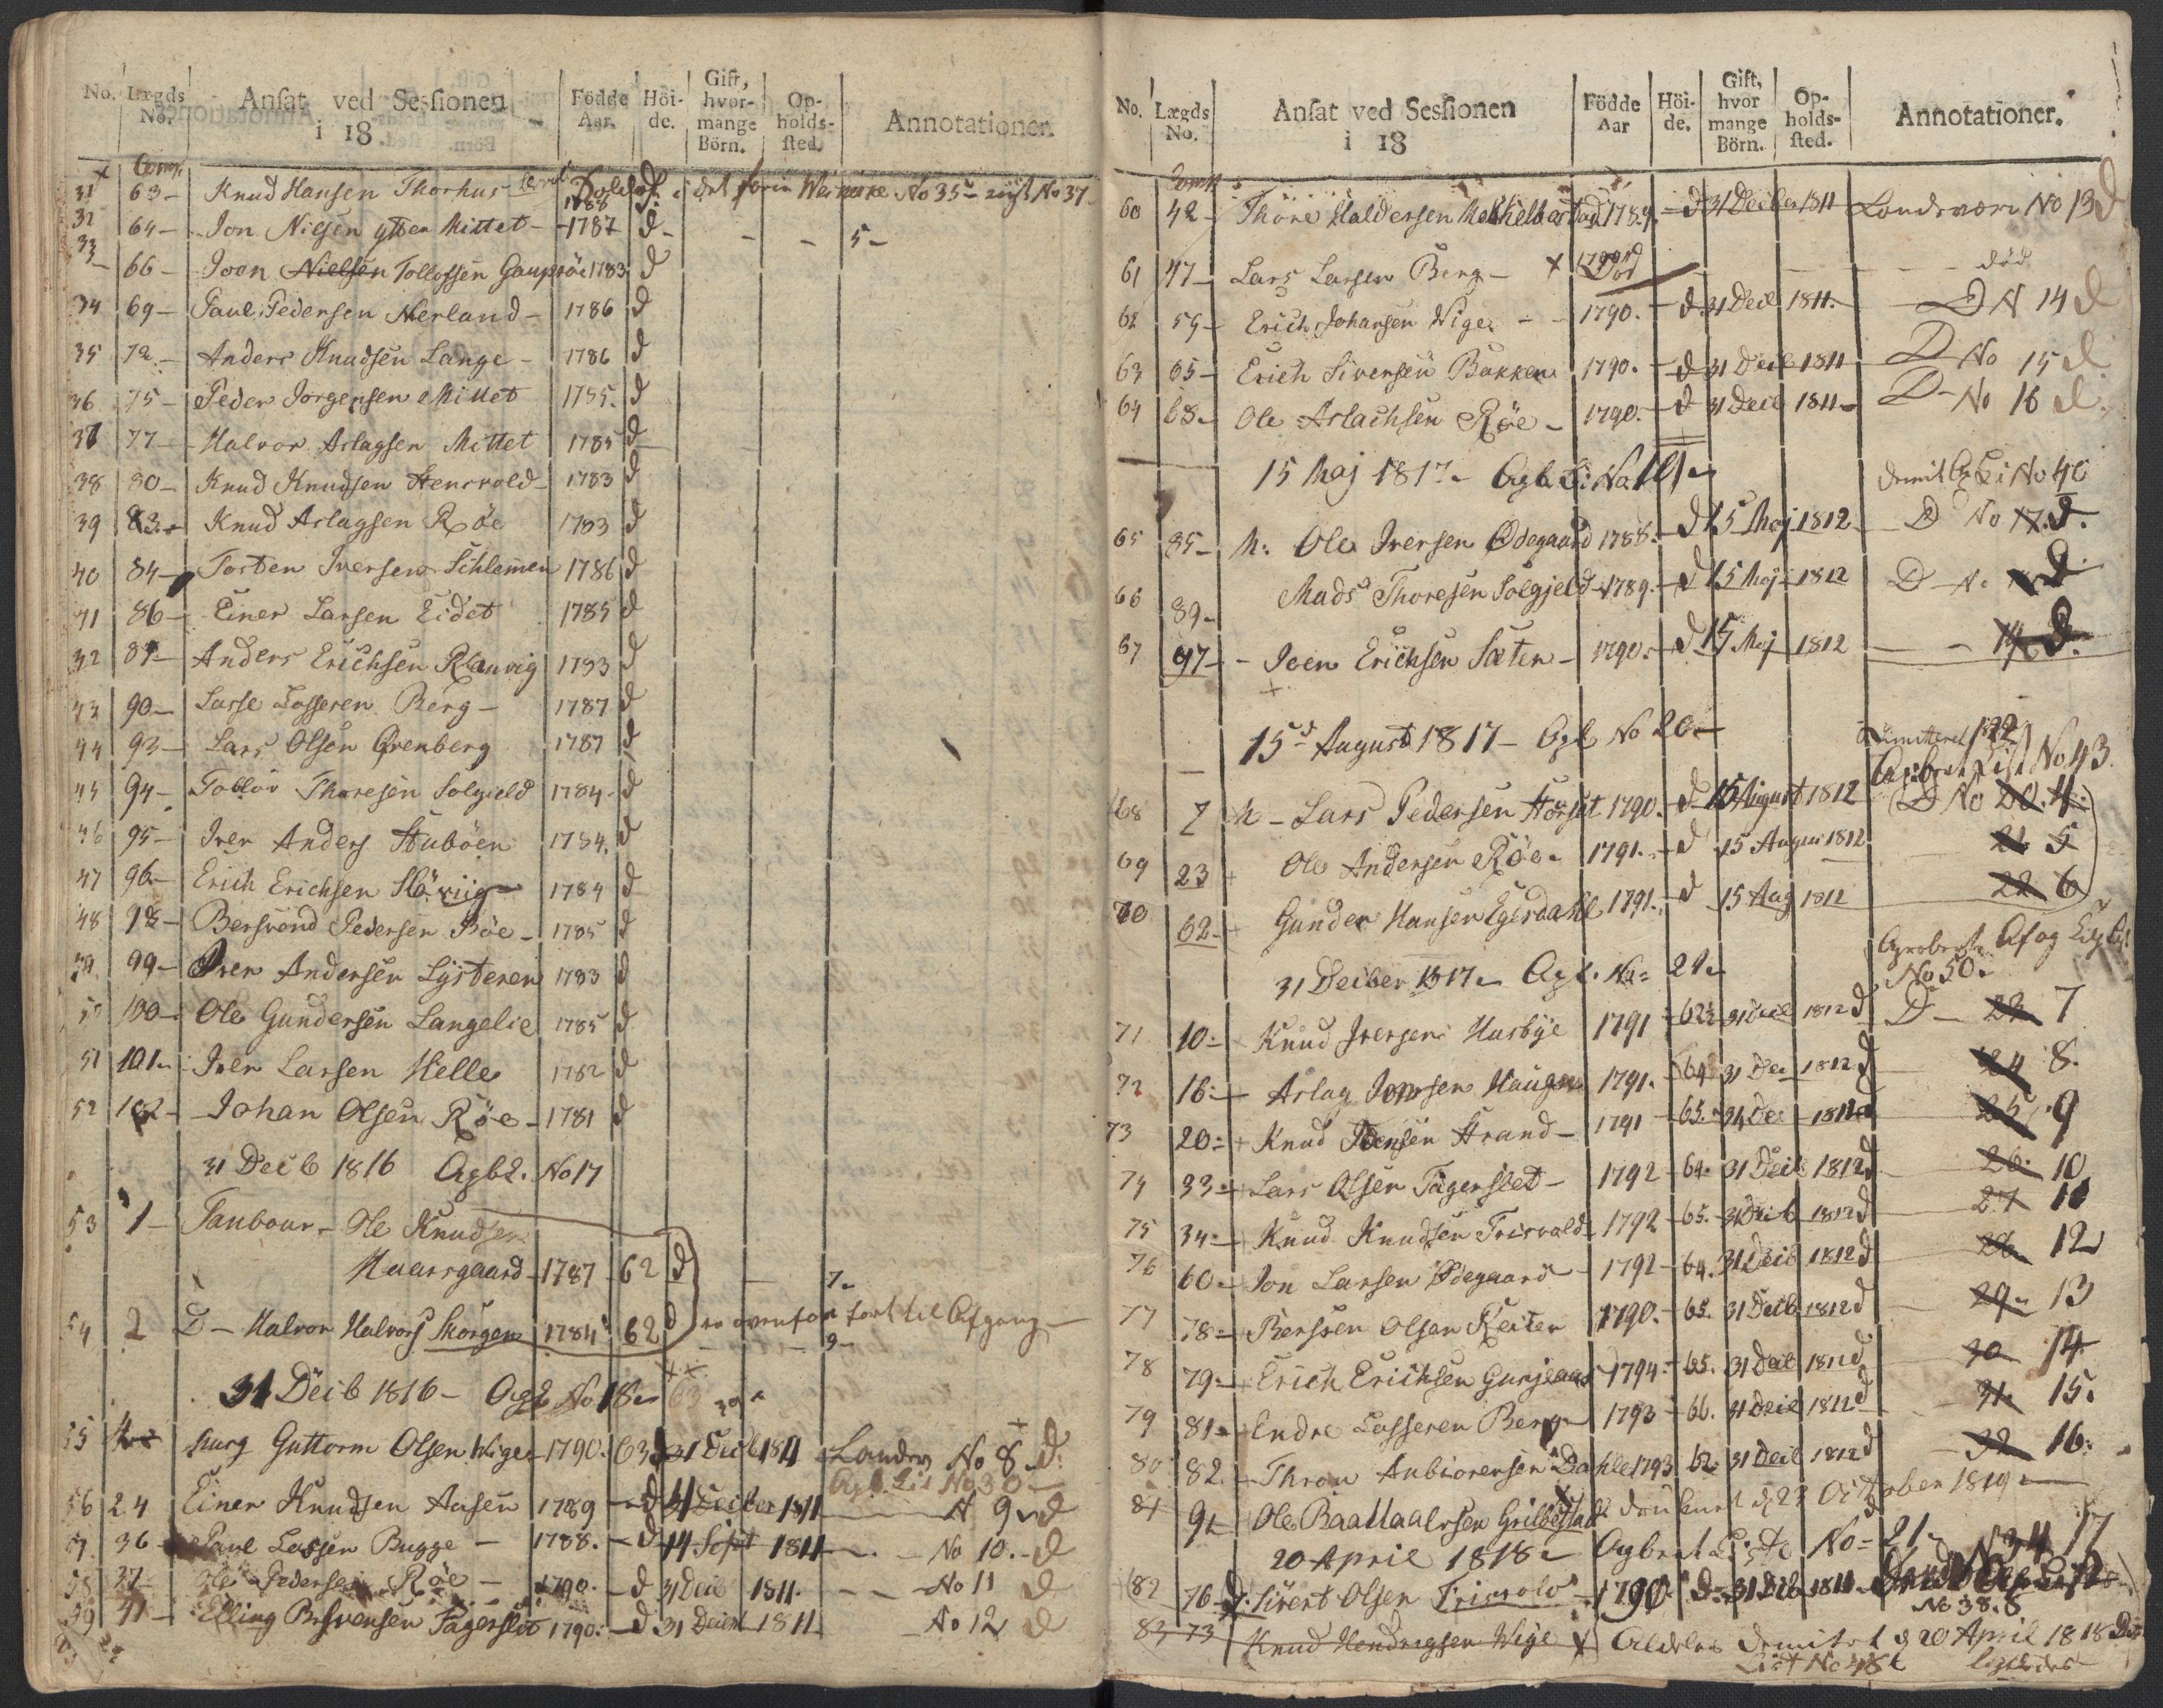 No. Lægds No. Ansat ved Sessionen i 18 Födde Aar. Höi-de. Gift, hvor-mange Börn. Op-holds-sted. Annotationer.
Comp.
31 63 - Knud Hansen Thorhus 1788 d
32 64 - Jon Nielsen ytter Mittet - 1787 d - - - 5 -
33 66 - Joen Nielsen Tollofsen Gauprøe 1783 d
34 69 - Paul Pedersen Nerland - 1786 d
35 72 - Anders Knudsen Lange - 1786 d
36 75 - Peder Jorgensen Mittet 1785. d
37 77 - Halvor Aslagsen Mittet 1785 d
38 80 - Knud Knudsen Hensvold - 1783 d
39 83 - Knud Aslagsen Röe 1783 d
40 84 - Torsten Iversen Schlemmen 1786 d
41 86 - Einer Larsen Eidet 1785 d
42 87 - Anders Erichsen Rauvig 1783 d
43 90 - Lasse Lassesen Berg - 1787 d
44 93 - Lars Olsen Grenberg 1787 d
45 94 - Tollov Thoresen Solgield 1784. d
46 95 - Iver Anders Stuböen 1784. d
47 96 - Erich Erichsen 1784 d
48 98 - Bersvend Pedersen Böe - 1785 d
49 99 - Iver Andersen Lysteren 1783 d
50 100 - Ole Gundersen Langelie 1785 d
51 101 - Iver Larsen Helle 1782 d
52 102 - Johan Olsen Röe - 1781 d
31 Decb 1816 Agbl. No 17
53 1 - Tanbour - Ole Knudsen
Haarsgaard - 1787 - 62 d - 7 -
54 2 D - Halvor Halvors Skorgen 1784 62 d er ovenfor fort til Afgang - 9 -
31 Decb 1816 - Agbl No 18 -
55 Surg Guttorm Olsen Wige - 1790. 63 d 31 Decb 1811 Landev No 8 d.
Agb. Lis No 30 -
56 24 Einer Knudsen Aasen 1789 - d 31 Decber 1811 - N 9 - d
57 36 - Paul Lassen Bugge - 1788. - d 14 Sept 1811 - - No 10. - d
58 37 - Ole Pedersen Röe - 1790. - d 31 Decb 1811. - - No 11 d
59 41 - Elling Bersvensen Fagerslet 1790. - d 31 Decbr 1811 No 12 d
No. Lægds No. Ansat ved Sessionen i 18 Födde Aar Höi-de. Gift, hvor mange Börn. Op-holds-sted. Annotationer.
Comp
60 42 - Thöre Haldorsen 1789. - d 31 Decber 1811 Landeværn No 13 d
61 47 - Lars Larsen Berg - x 1790 Död - - - død
62 59 - Erich Johansen Wige - - 1790. - d 31 Decb 1811. - D N 14 d
63 65 - Erich Siversen Bakken 1790. - d 31 Decb 1811 D No 15 d
64 68 - Ole Aslachsen Röe - 1790. - d 31 Decb 1811 - D - No 16 d.
15 Maj 1817 - Agb. Li: No 19 - Dimit Agb Li No 40
65 85 - M: Ole Iversen Ödegaard 1788. - d 15 Maj 1812 - D No 17. d.
66 89 - Mads Thoresen Solgjeld - 1789. - d 15 Maj - 1812 D - N. d
67 97 - - Joen Erichsen Sæter - 1790. - d 15 Maj 1812 - - 19 d.
15d August 1817 - Agbl No 20 - Dimitteret 1822
Agbrets List No 43.
68 7 M - Lars Pedersen Horset 1790. - d 15 August 1812 D No 20. 4.
69 23 + Ole Andersen Röe - 1791. - d 15 August 1812 21 5
70 62 - + Gunder Hansen Egerdahl 1791. - d 15 Aug 1812 22 6
31 Decber 1817 - Agb. No = 21 - Agebrets Afog Lis
No 50.
71 10 = - Knud Iversen Husbye 1791 - 62½ 31 Decb 1812 d D - 23 7
72 16 = - Aslag Haugen 1791. - 64 31 Dec 1812 d 24 8.
73 20 = + Knud Strand - 1791 - 65. 31 Dec - 1812 d 25 . 9
74 33 = + Lars Olsen Fagerslet - 1792 - 64. 31 Decb 1812 d - 26. 10
75 34 = + Knud Knudsen Trisvold - 1792 - 65. 31 Decb 1812 d - 27 11
76 60 = + Jon Larsen Ödegaard - 1792 - 64. 31 Decb 1812 d 28 12
77 78 = + Bersven Olsen Reiten 1790. - 65. 31 Decb 1812 d - 29 - 13
78 79 = + Erich Erichsen 1794 - 65. 31 Decb 1812 d - 30 14.
79 81 = + Endre Lassesen Berg - 1793 - 66. 31 Decb 1812 d - 31 15.
80 82. - Thron Dahle 1793 62. 31 Decb 1812 d - 32 16.
81 91 + Ole Druknet d 23 October 1819 -
20 April 1818 - Agbret Liste No = 21 - N 34 17
82 76 - d. Sivert Olsen Trisvold - 1790. d - 31 Decb 1811
No 38. 8
83 73 Knud Hendrigsen Wige x Aldeles Dimitert d 20 April 1818
List No 48